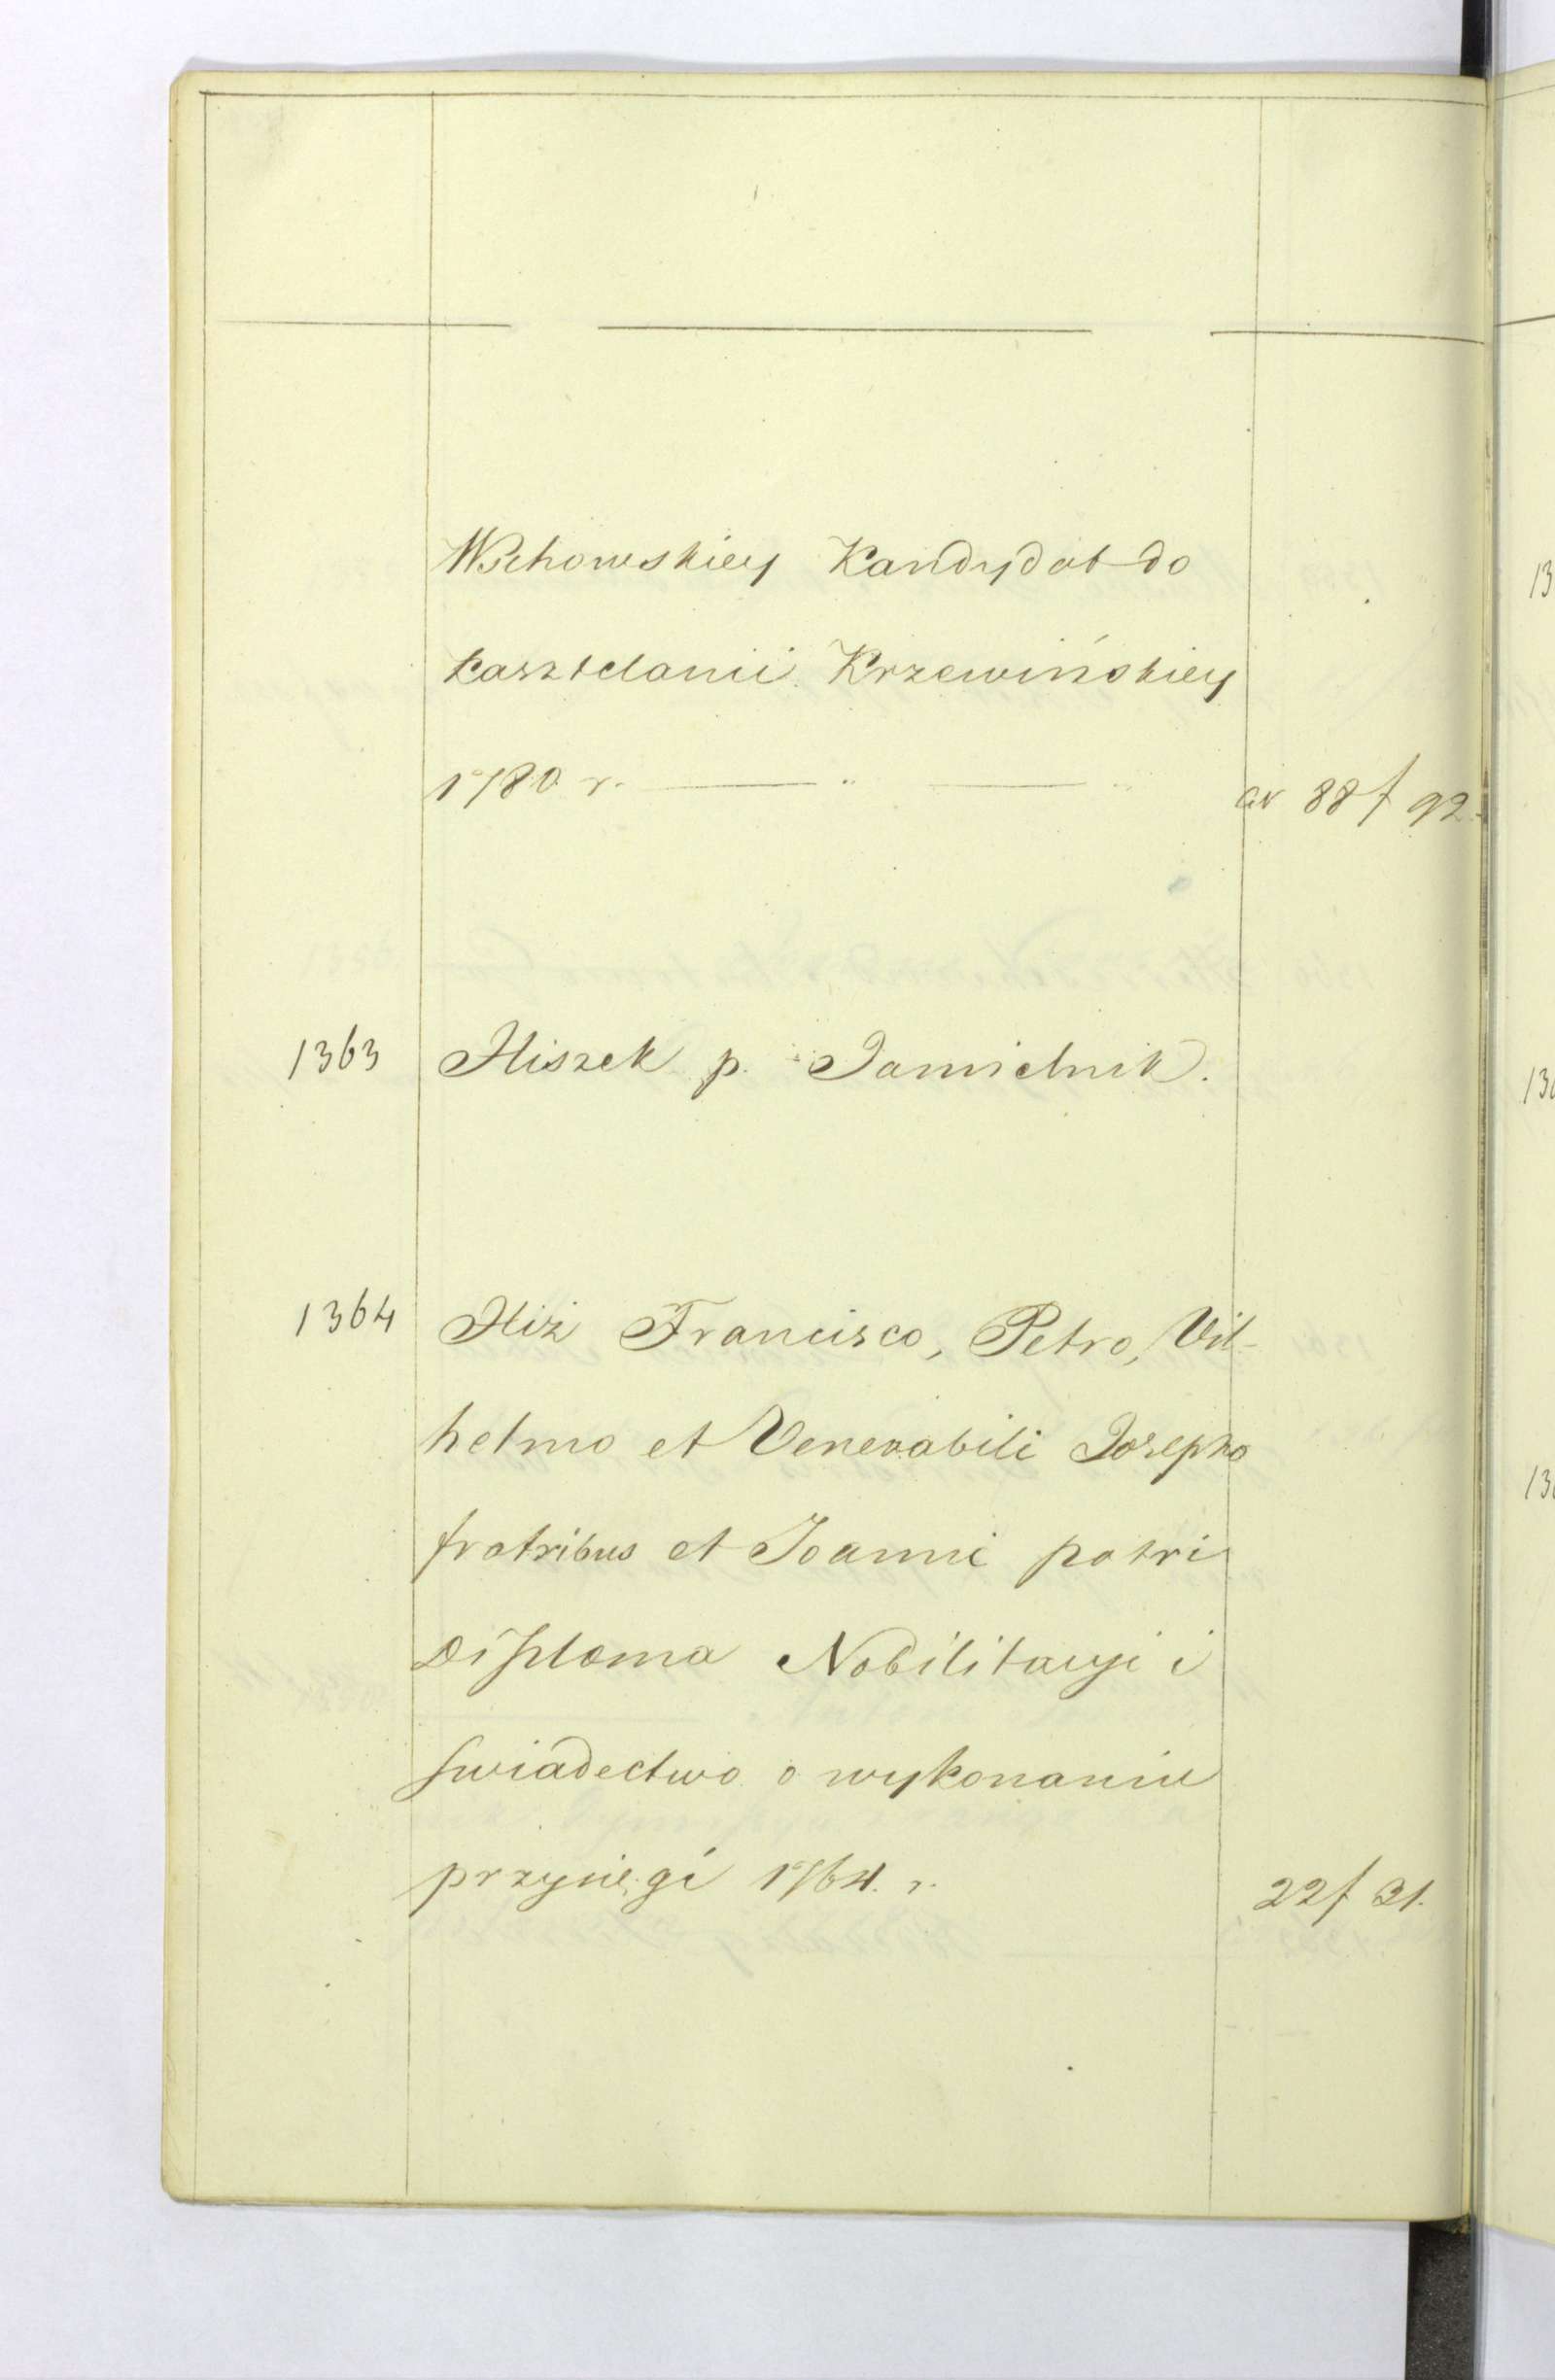 Wschowskiey Kandydat do
kasztelanii Krzewińskiey
1780 r. av 88 f 92.
1363 Hiszek p. Jamielnik.
1364 Hiż Francisco, Petro, Vil-
helmo et Venerabili Josepho
fratribus et Joanni patri
Diploma Nobilitacyi i
swiadectwo o wykonaniu
przysięgi 1764. r. 22 f 31.